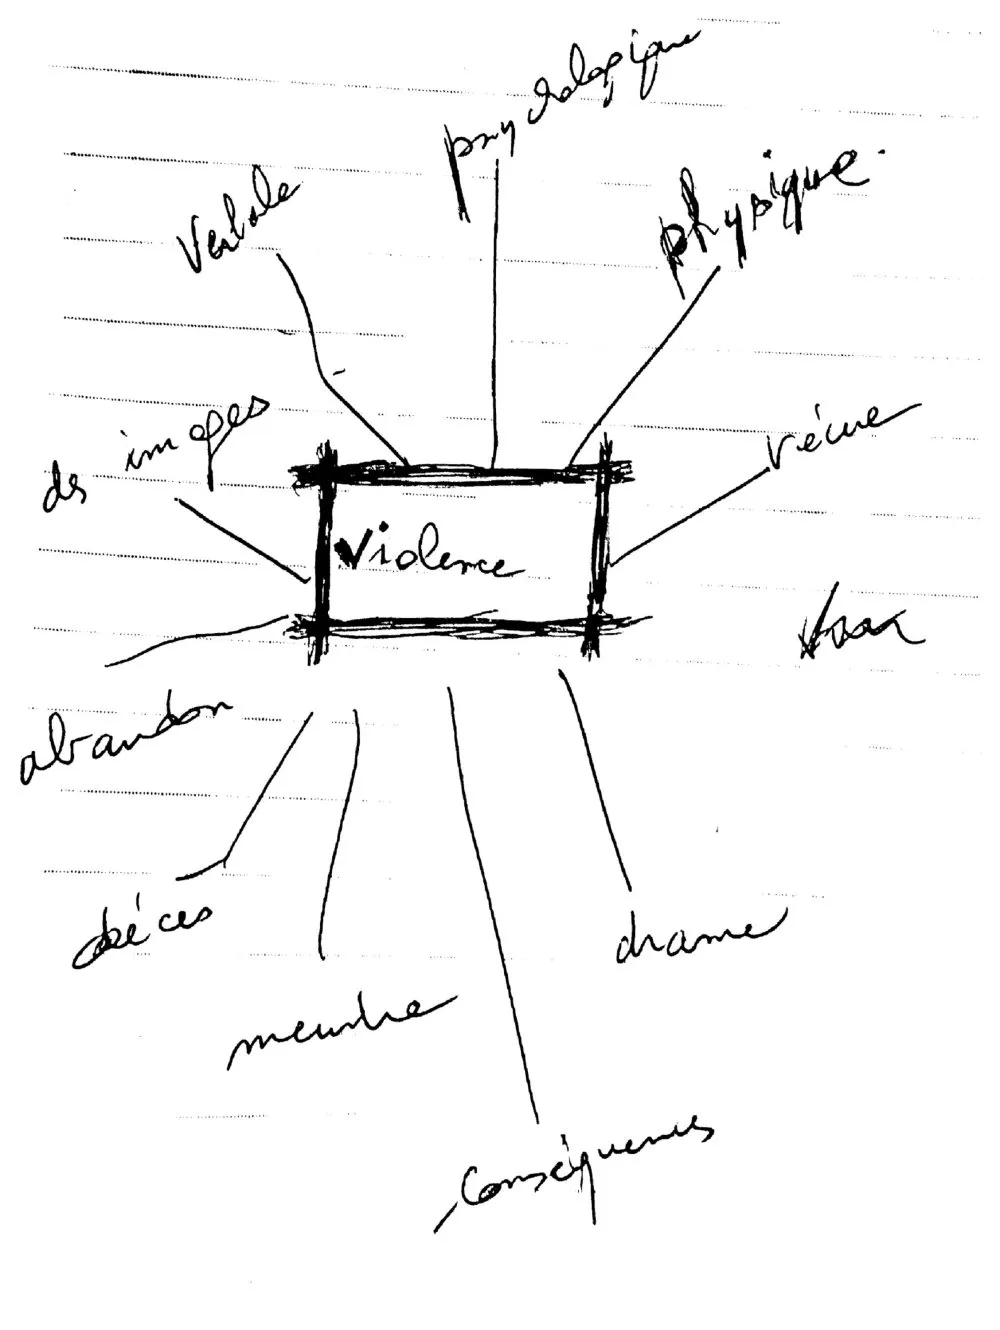 psychologique
Verbale
physique
des images
vécue
Violence
abandon
décès
drame
meurtre
Conséquences